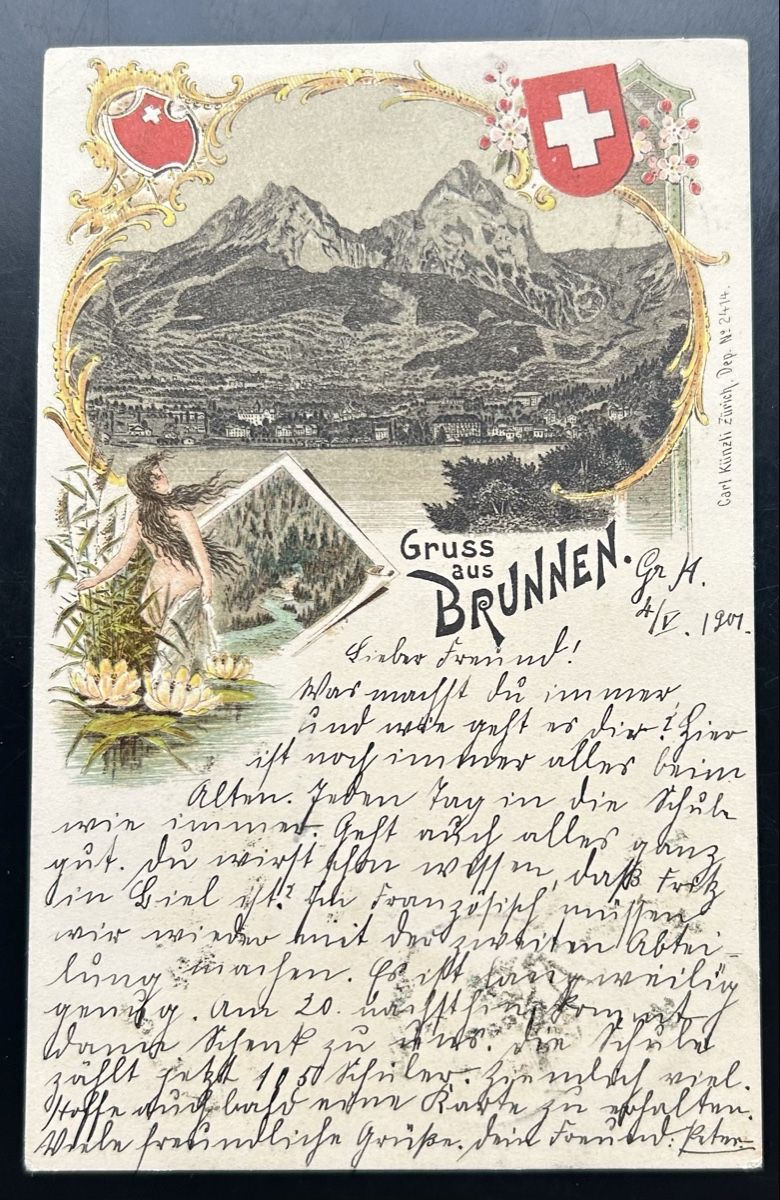 Gruss
aus
BRUNNEN.
Carl Künzli Zürich, Dep. No 2414.
Gr H.
4/V. 1901.
Lieber Freund!
Was machst du immer
und wie geht es dir? Hier
ist noch immer alles beim
Alten. Jeden Tag in die Schule
wie immer. Geht auch alles ganz
gut. Du wirst schon wissen, daß Fritz
in Biel ist? Im Französisch müssen
wir wieder mit der zweiten Abtei-
lung machen. Es ist langweilig
genug. Am 20. nächsthin kommt
dann Schenk zu uns. Die Schule
zählt jetzt 105 Schüler. Ziemlich viel.
Hoffe auch bald eine Karte zu erhalten.
Viele freundliche Grüße. dein Freund: Peter.